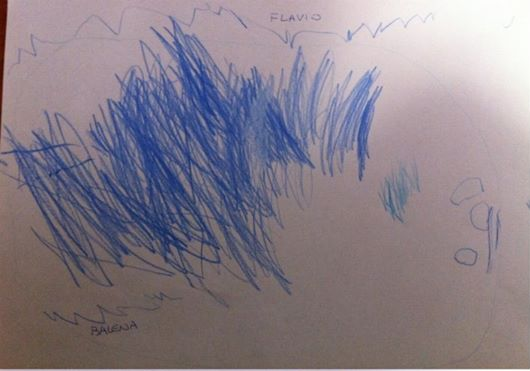 FLAVIO
BALENA